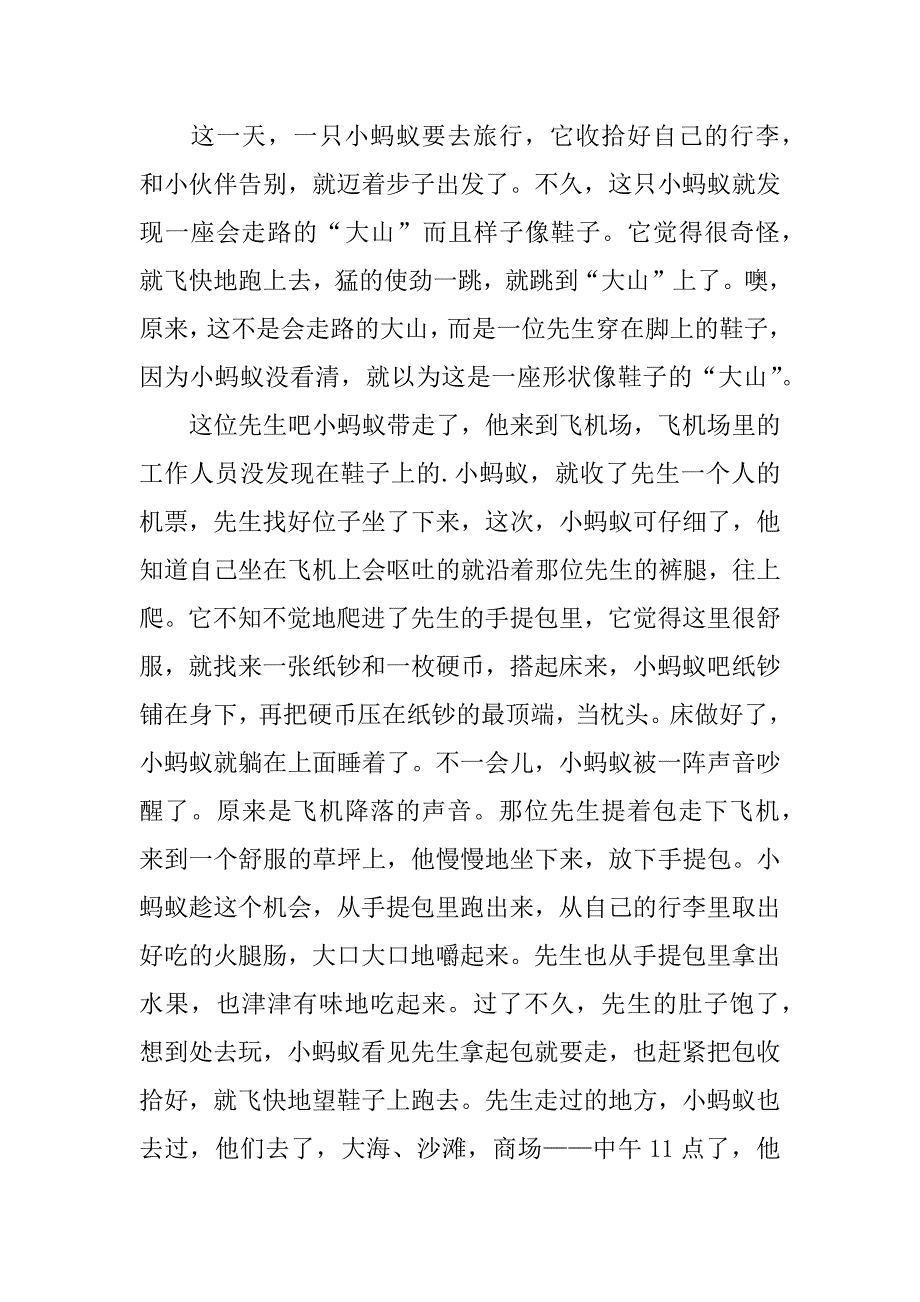 这一天，一只小蚂蚁要去旅行，它收拾好自己的行李，
和小伙伴告别，就迈着步子出发了。不久，这只小蚂蚁就发
现一座会走路的“大山”而且样子像鞋子。它觉得很奇怪，
就飞快地跑上去，猛的使劲一跳，就跳到“大山”上了。噢，
原来，这不是会走路的大山，而是一位先生穿在脚上的鞋子，
因为小蚂蚁没看清，就以为这是一座形状像鞋子的“大山”。
这位先生吧小蚂蚁带走了，他来到飞机场，飞机场里的
工作人员没发现在鞋子上的.小蚂蚁，就收了先生一个人的
机票，先生找好位子坐了下来，这次，小蚂蚁可仔细了，他
知道自己坐在飞机上会呕吐的就沿着那位先生的裤腿，往上
爬。它不知不觉地爬进了先生的手提包里，它觉得这里很舒
服，就找来一张纸钞和一枚硬币，搭起床来，小蚂蚁吧纸钞
铺在身下，再把硬币压在纸钞的最顶端，当枕头。床做好了，
小蚂蚁就躺在上面睡着了。不一会儿，小蚂蚁被一阵声音吵
醒了。原来是飞机降落的声音。那位先生提着包走下飞机，
来到一个舒服的草坪上，他慢慢地坐下来，放下手提包。小
蚂蚁趁这个机会，从手提包里跑出来，从自己的行李里取出
好吃的火腿肠，大口大口地嚼起来。先生也从手提包里拿出
水果，也津津有味地吃起来。过了不久，先生的肚子饱了，
想到处去玩，小蚂蚁看见先生拿起包就要走，也赶紧把包收
拾好，就飞快地望鞋子上跑去。先生走过的地方，小蚂蚁也
去过，他们去了，大海、沙滩，商场——中午 11 点了，他